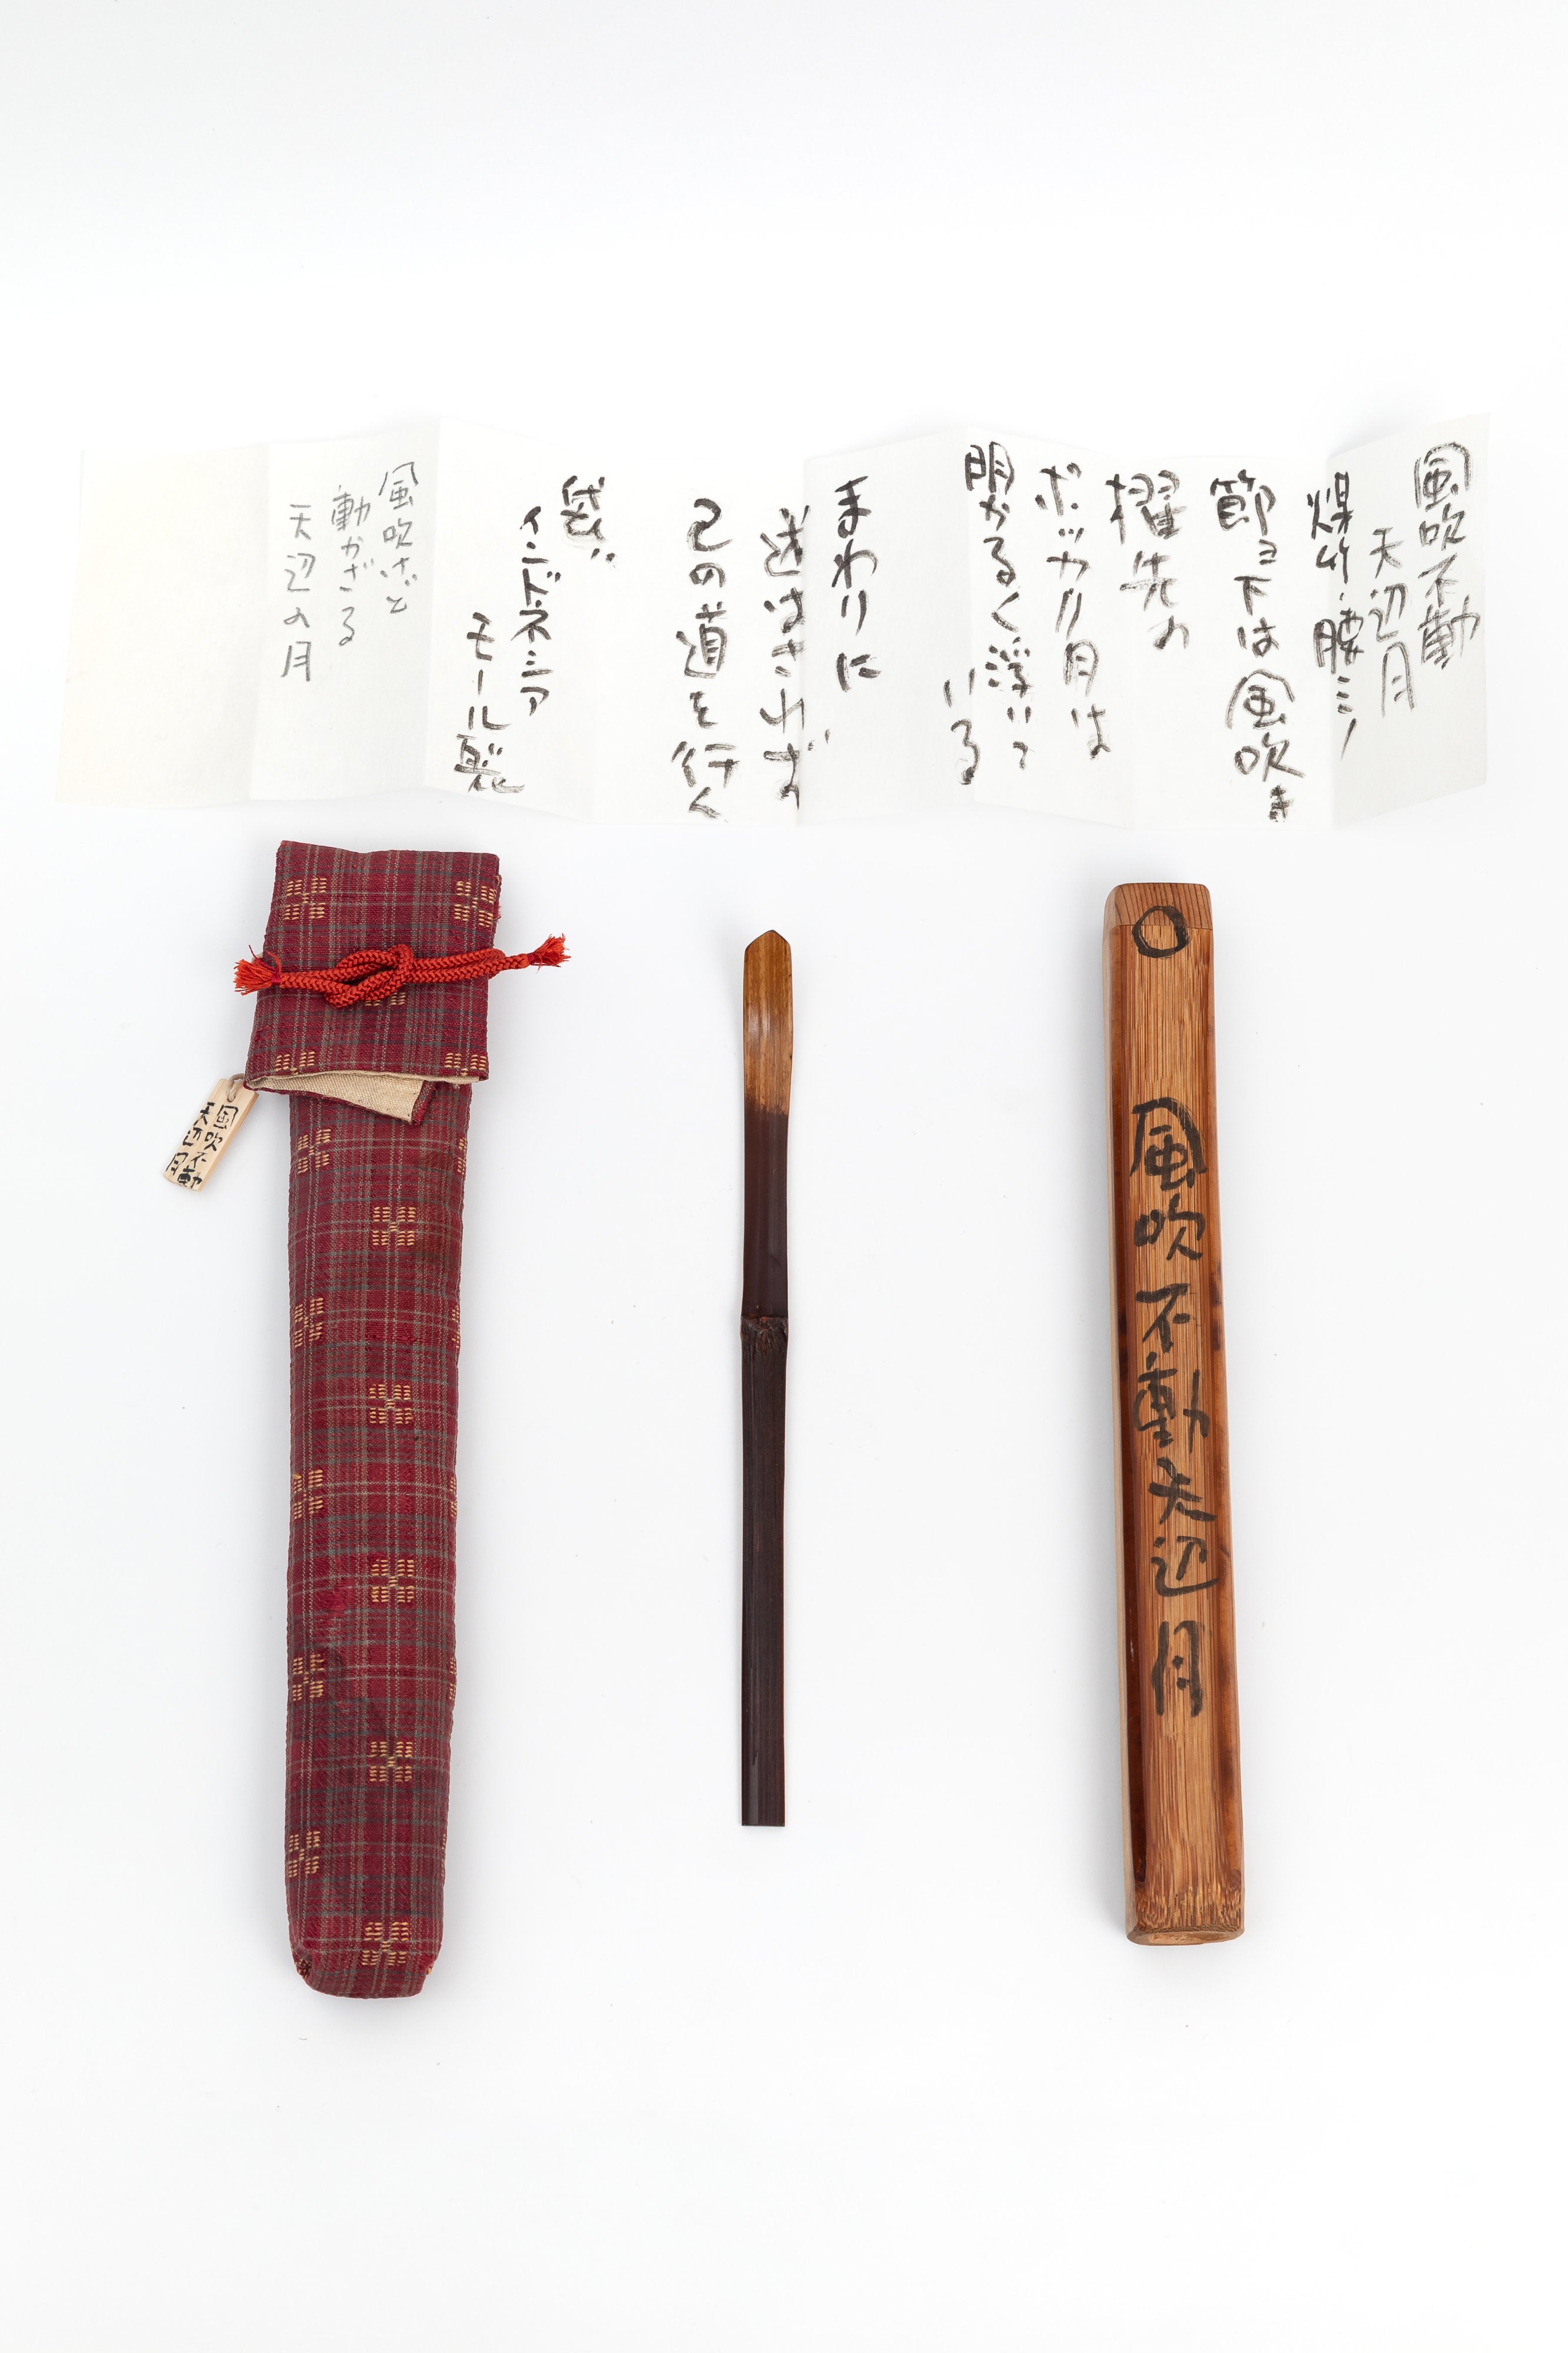 風吹不動
天辺月
煤竹・腰ミノ
節ヨ下は風吹き
櫂先の
ポッカリ月は
明かるく浮いて
いる
まわりに
迷はされず
己の道を行く
袋
インドネシア
モール製
風吹けど
動かざる
天辺の月
風吹不動
天辺月
風吹不動天辺月